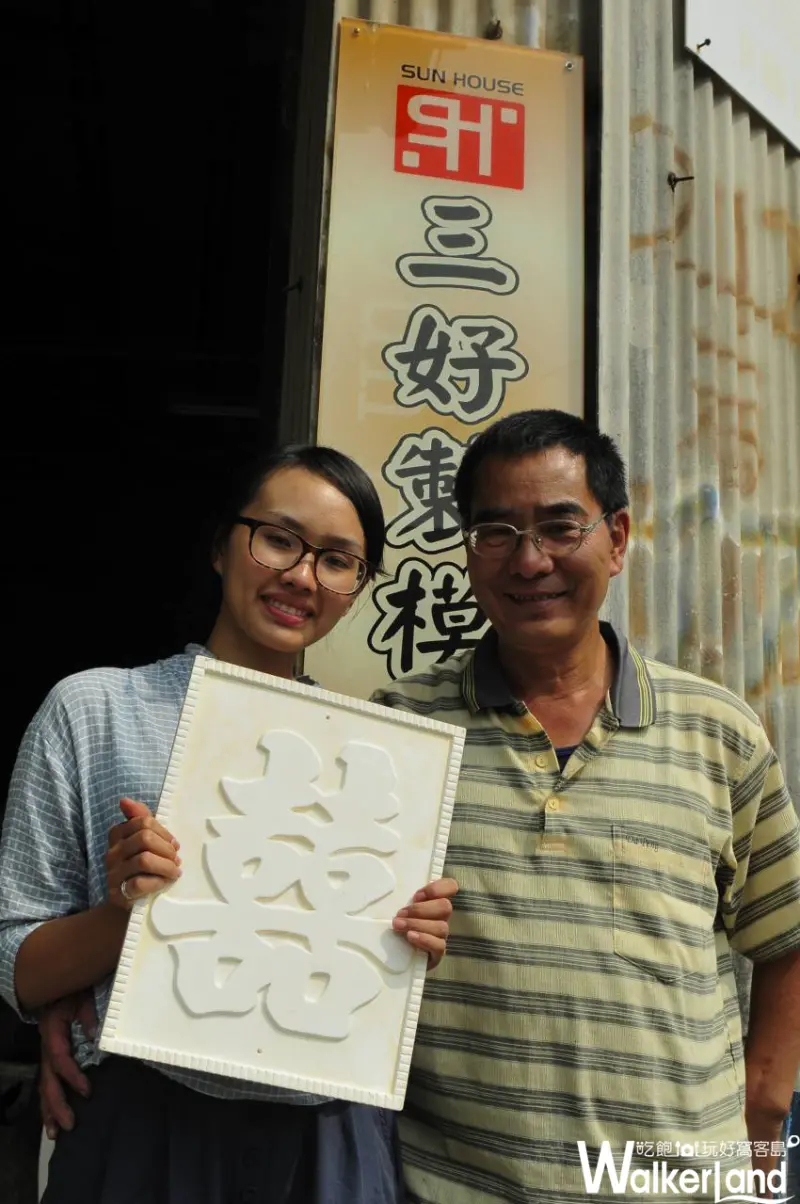 SUN HOUSE
SH
三好製模
囍
吃飽玩好窩客島
WalkerLand